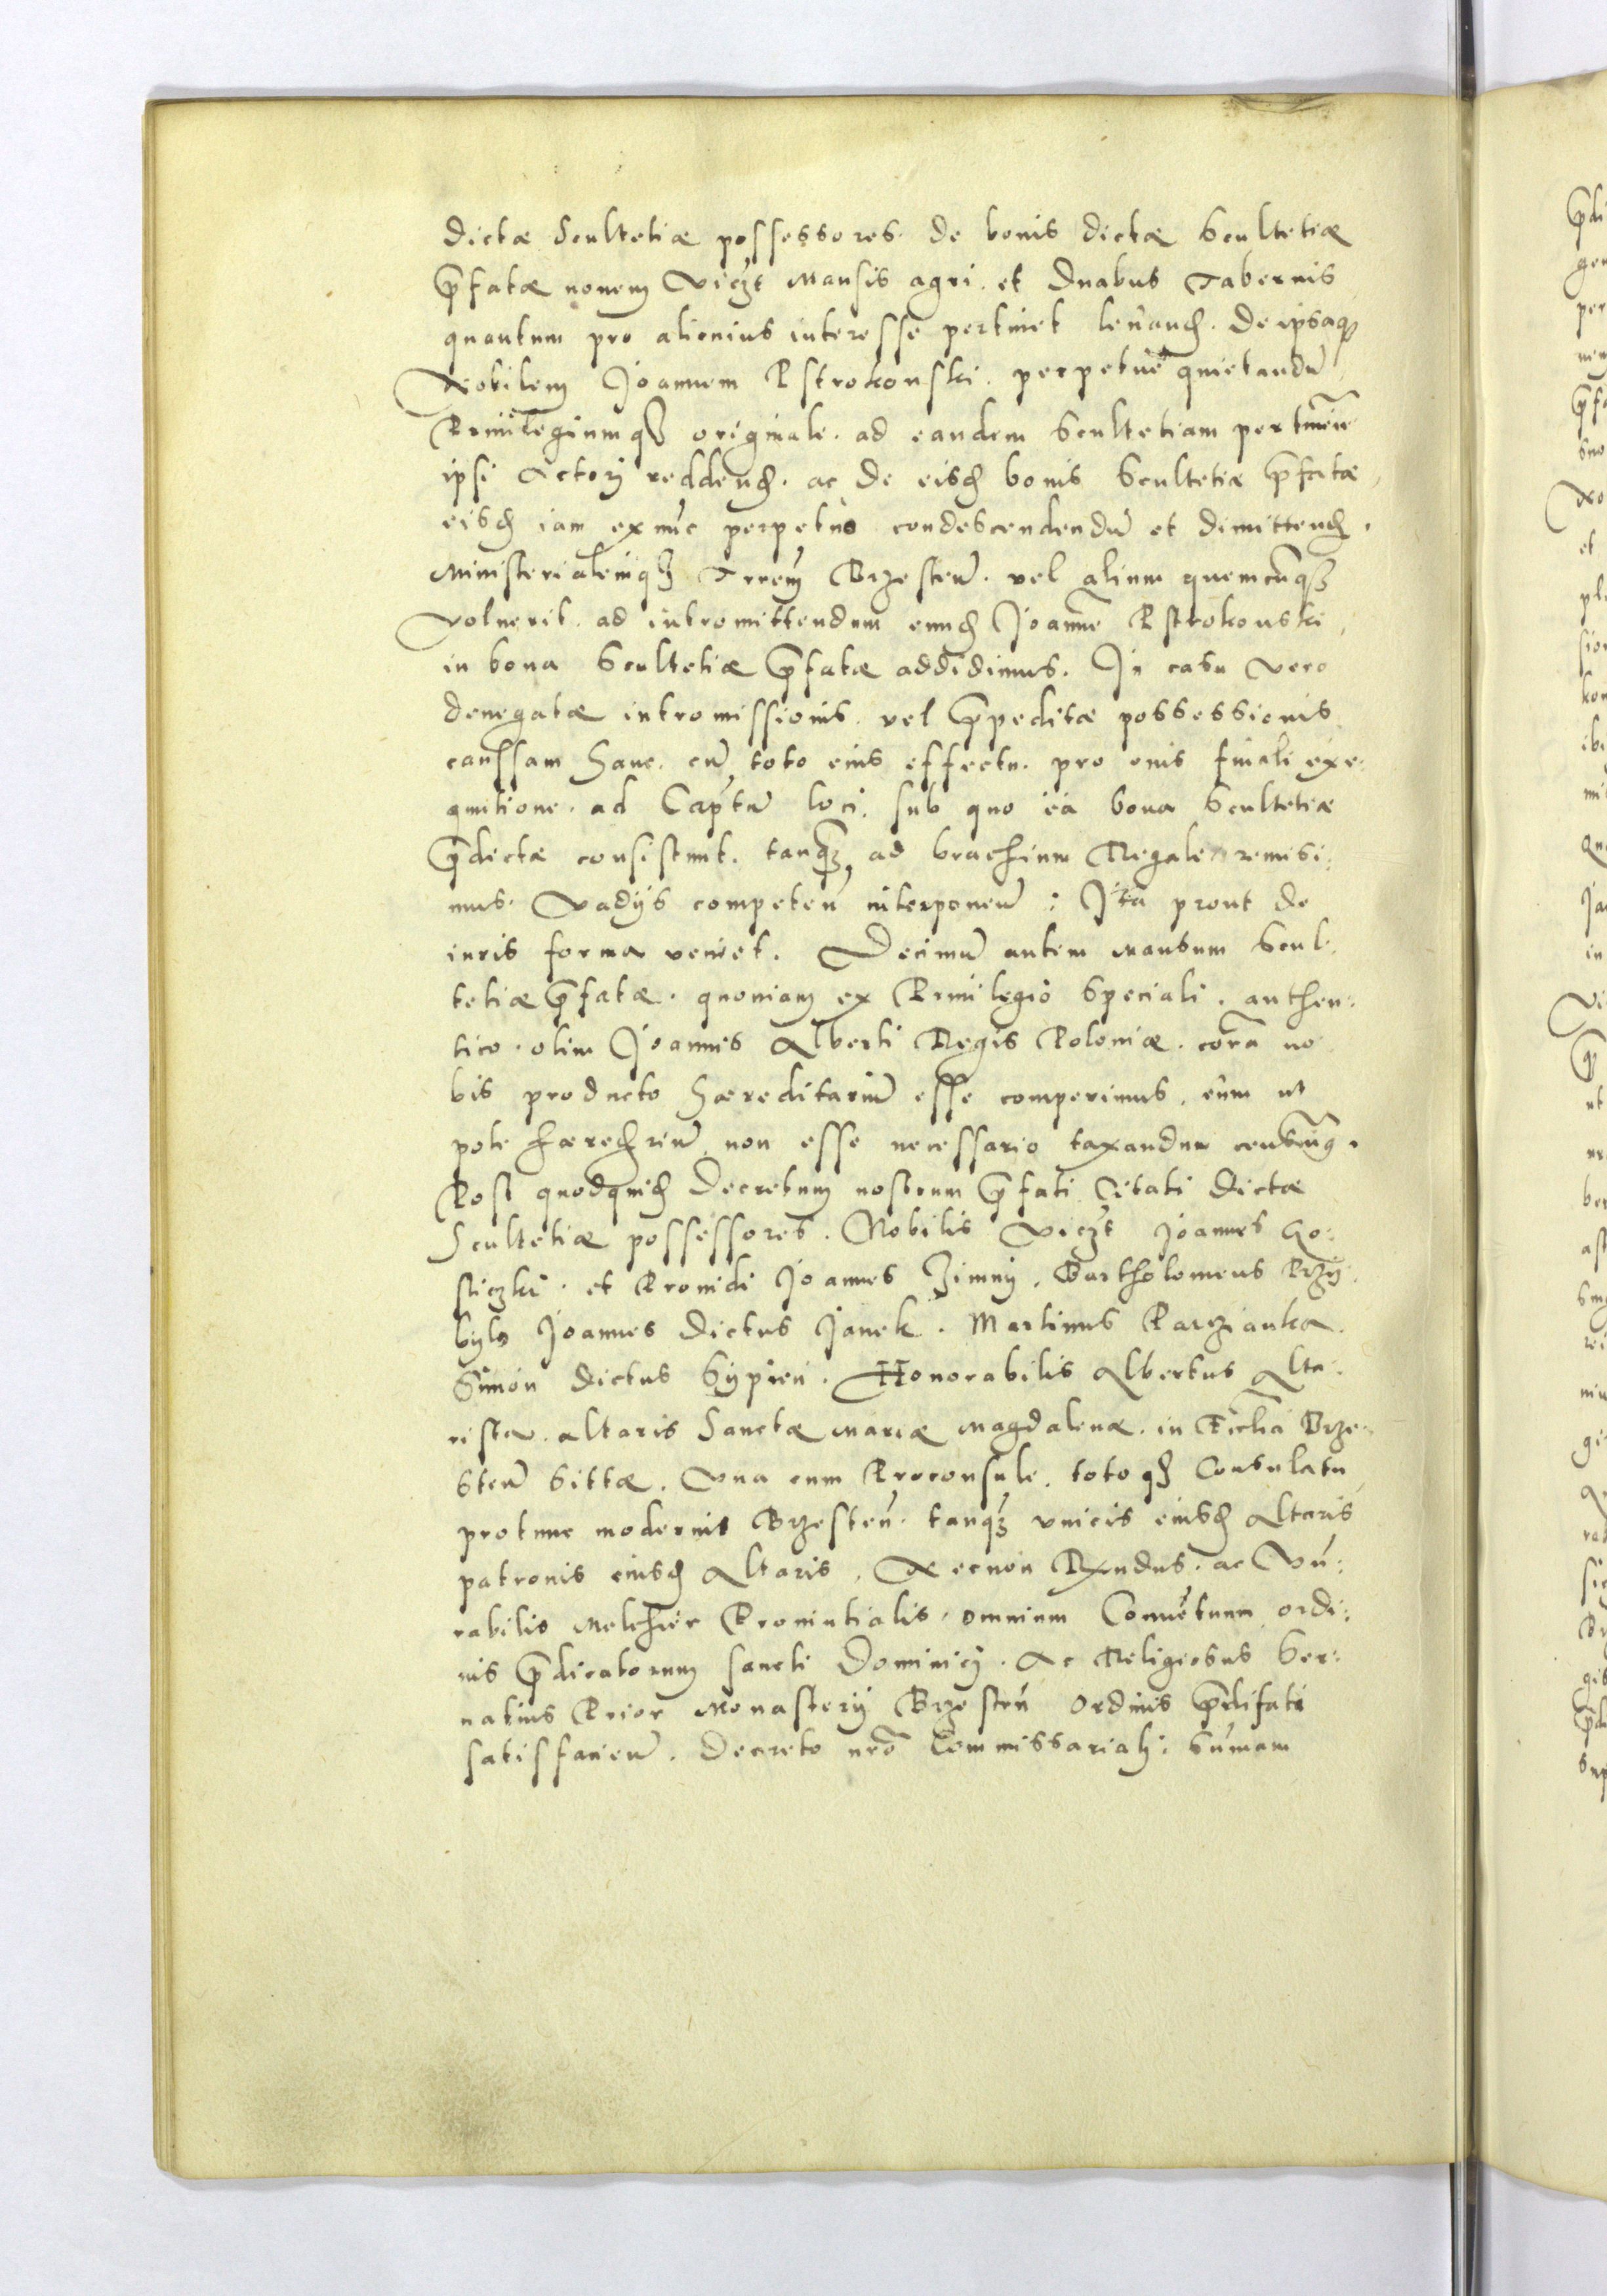 dictæ Scultetiæ possessores. de bonis dictæ Scultetiæ
p̄fatæ nouem viczt Mansis agri. et duabus Tabernis
quantum pro alicuius interesse pertinet leuañd. De ipsaq3
Nobilem Joannem Pstrokonski. perpetue quietandū
Priuilegiumq3 originale. ad eandem Scultetiam pertineñ
ipsi Actorj reddend. ac de eisd bonis Scultetiæ p̄fatæ
eisd iam exnūc perpetuo condescendendū et dimittend.
Ministerialemq3 Trrem Brzesteñ. vel alium quemcūq3
voluerit. ad intromittendum eund Joannē Pstrokonski
in bona Scultetiæ p̄fatæ addidimus. In casu vero
denegatæ intromissionis. vel p̄peditæ possessionis
caussam hanc. cū toto eius effectu. pro eius finali exe:
qutione. ad Captū loci. sub quo ea bona Scultetiæ
p̄dictæ consistunt. tanq3 ad brachium Regale remisi:
mus. Vadÿs competeñ interponeñ: Ita prout de
iuris forma veniet. Decimū autem Mansum Scul:
tetiæ p̄fatæ. quoniam ex Priuilegio Speciali. authen:
tico. olim Joannis Alberti Regis Poloniæ. corā no
bis producto hæreditariū esse comperimus. eum ut
pote hæredriū non esse necessario taxandum
Post quodquid Decretum nostrum p̄fati Citati dictæ
Scultetiæ possessores. Nobilis viczt Joannes Go:
sticzki. et Prouidi Joannes Zimny. Bartholomeus Przy
bylo Joannes dictus Janek. Martinus Parzianka.
Simon dictus Sypien. Honorabilis Albertus Alta:
rista. altaris Sanctæ Mariæ Magdalenæ. in Ecclia Brze:
steñ sittæ. Vna cum Proconsule. totoq3 Consulatu
protunc modernis Brzesteñ. tanq3 vnicis eiusd Altaris
patronis eiusd Altaris. Necnon Rxndus. ac Vn:
rabilis Melchior Prouintialis. omnium Conuētuum ordi:
nis p̄dicatorum sancti Dominicj. Ac Religiosus Ber:
natius Prior Monasterÿ Brzesteñ Ordinis p̄difati
satisfacieñ. Decreto nrō Commissarialj. Sūmam